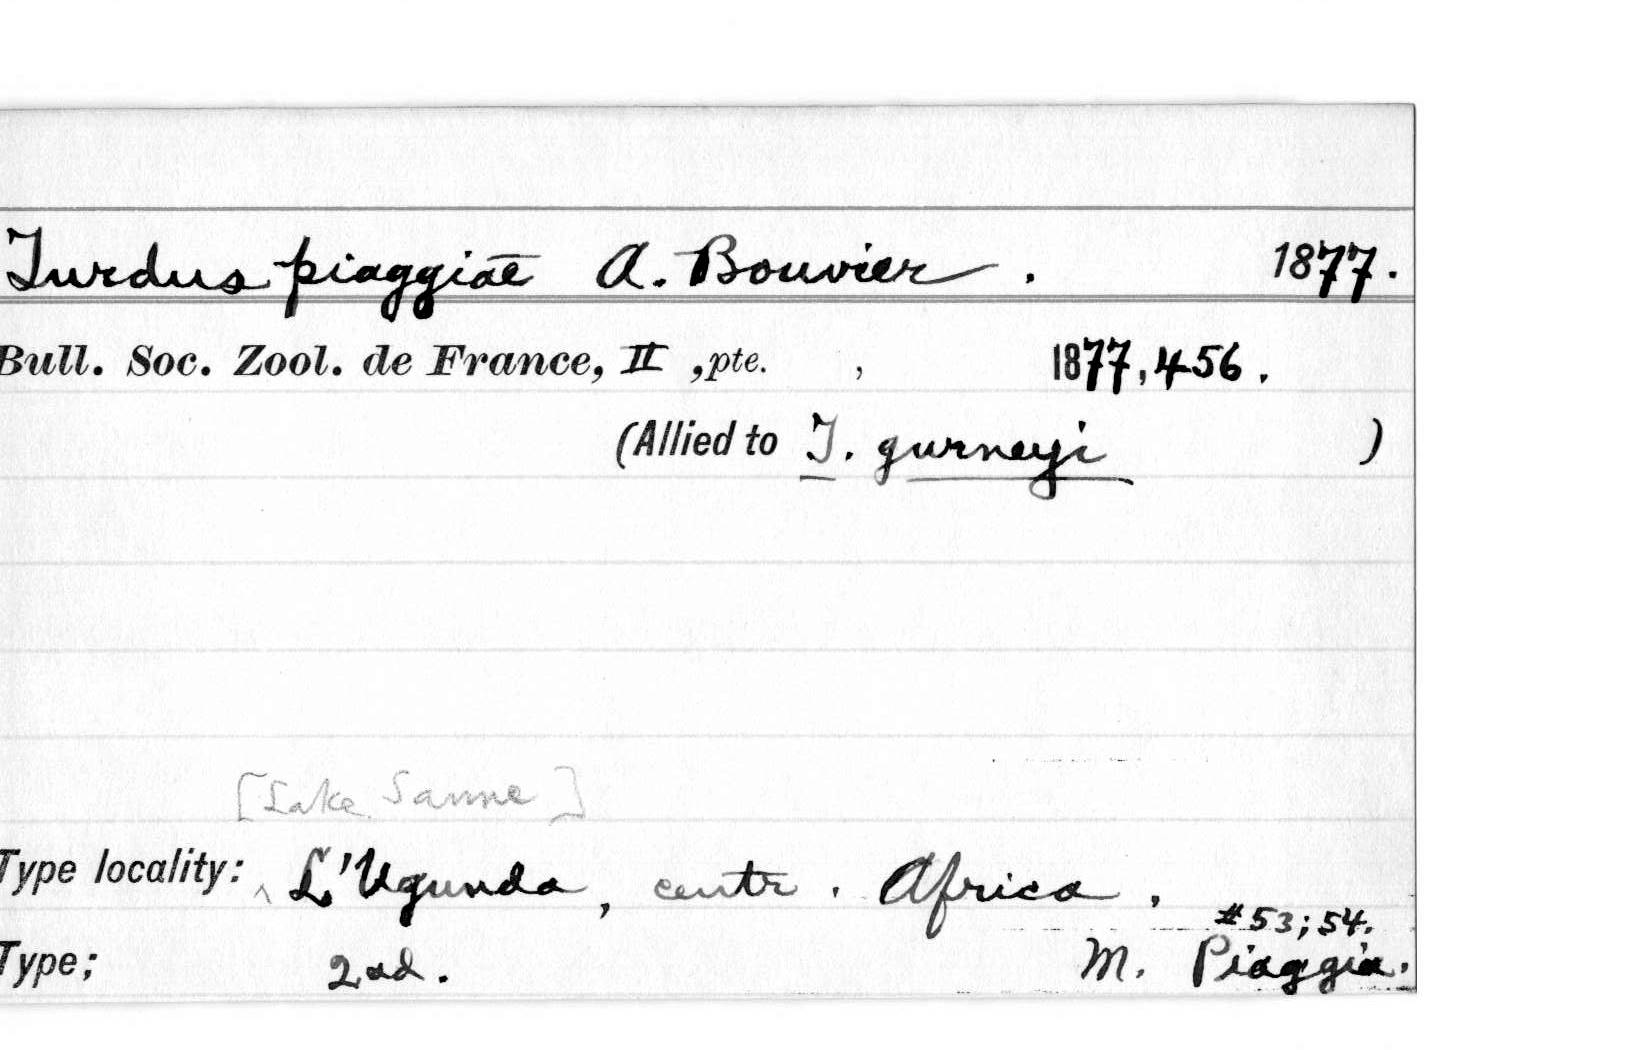 Turdus piaggiae A. Bouvier . 1877.
Bull. Soc. Zool. de France, II , pte. , 1877, 456.
(Allied to T. gurneyi )
[Lake
Type locality: ^ L'Ugunda, centr. Africa.
#53; 54.
Type; 2 ad. M. Piaggia.